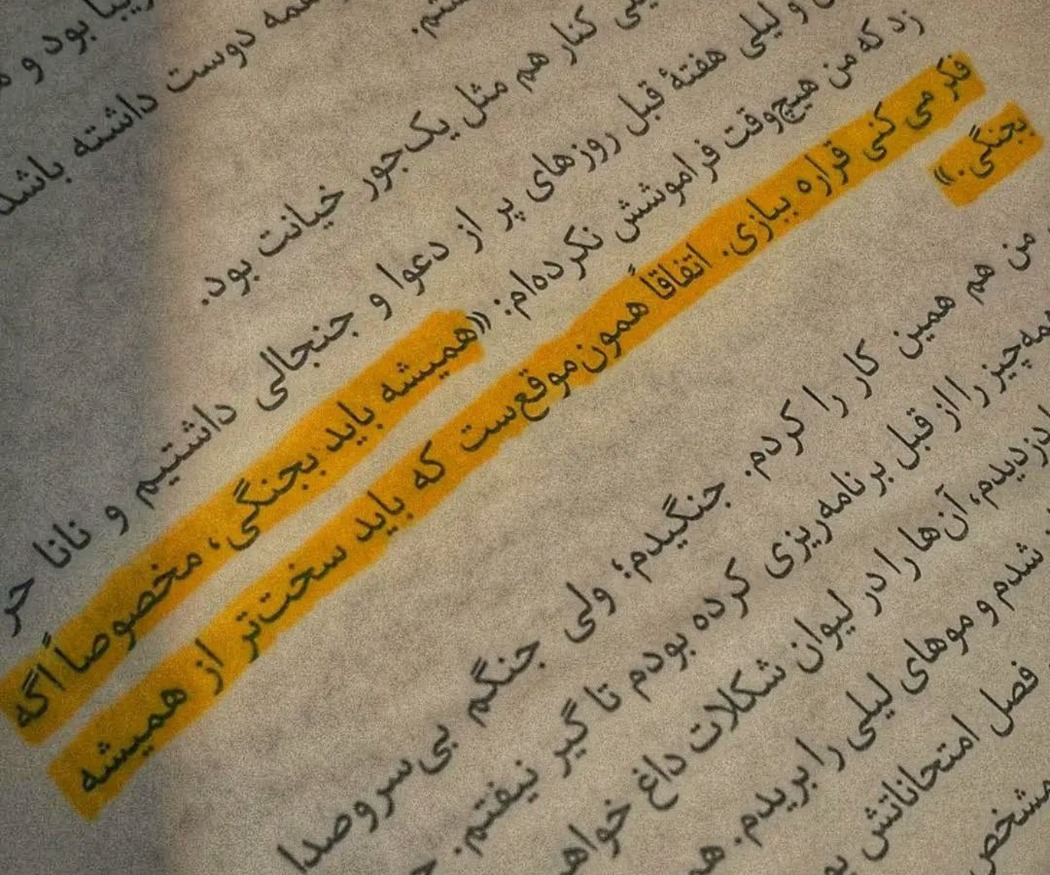 بود و
همه دوست داشته باشد
کنار هم مثل یک‌جور خیانت بود.
و لیلی هفتهٔ قبل روزهای پر از دعوا و جنجالی داشتیم و نانا حر
زد که من هیچ‌وقت فراموشش نکرده‌ام: «همیشه باید بجنگی، مخصوصاً اگه
فکر می کنی قراره ببازی. اتفاقاً همون‌موقع‌ست که باید سخت‌تر از همیشه
بجنگی.»
من هم همین کار را کردم. جنگیدم؛ ولی جنگم بی‌سروصدا
همه‌چیز را از قبل برنامه‌ریزی کرده بودم تا گیر نیفتم.
دزدیدم، آن‌ها را در لیوان شکلات داغ خواه
شدم و موهای لیلی را بریدم.
فصل امتحاناتش
مشخص